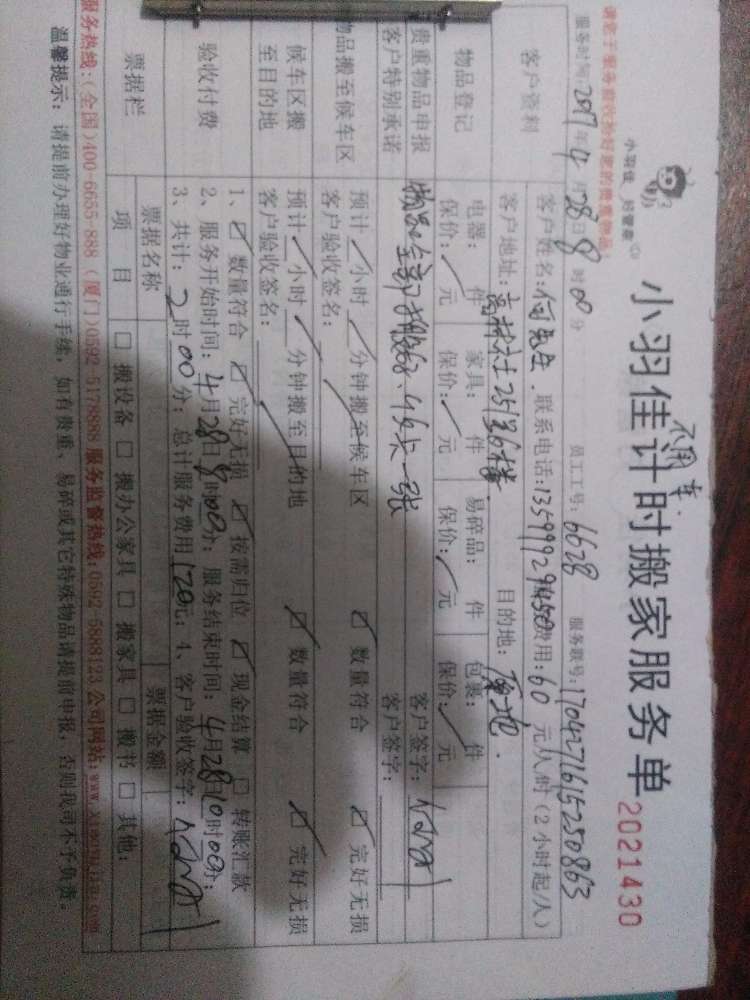 不用车
小羽佳计时搬家服务单 2021430
小羽佳
服务时间:2017年4月28日8时00分 员工工号:6628 服务联号:17042716152508 63
客户资料
客户姓名:何先生 联系电话:13599929450 费用:60元/人/时(2小时起/人)
客户地址: 251号6楼 目的地:原地
物品登记
电器: 件 家具: 件 易碎品: 件 包裹: 件
保价:/元 保价:/元 保价:/元 保价:/元
贵重物品申报
客户特别承诺
物品全部搬好、收具一张 客户签字:
物品搬至候车区
预计/小时/分钟搬至候车区 ☑数量符合 ☑完好无损
客户验收签名: 客户签字:
候车区搬
至目的地
预计/小时/分钟搬至目的地 ☑数量符合 ☑完好无损
客户验收签名:
验收付费
1、☑数量符合 ☑完好无损 ☑按需归位 ☑现金结算 □转账汇款
2、服务开始时间:4月28日8时00分;服务结束时间:4月28日10时00分;
3、共计:2时00分;总计服务费用120元;4、客户验收签字:
票据栏
票据名称 票据金额
项目 □搬设备 □搬办公家具 □搬家具 □搬书 □其他:
服务热线:(全国)400-6655-888 (厦门)0592-5178888 服务监督热线:0592-5888123 公司网站:
温馨提示:请提前办理好物业通行手续,如有贵重、易碎或其它特殊物品请提前申报,否则我司不予负责。